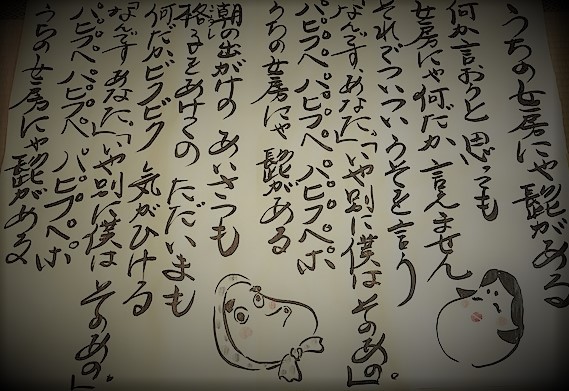 うちの女房にゃ髭がある
何か言おうと 思っても
女房にゃ何だか 言えません
それでついつい うそを言う
なんです あなた」「いや別に 僕は そのあの」
パピプペ パピプペ パピプペポ
うちの女房にゃ 髭がある
朝の出がけの あいさつも
格子をあけての ただいまも
何だかビクビク 気がひける
なんです あなた」「いや別に 僕は そのあの」
パピプペ パピプペ パピプペポ
うちの女房にゃ 髭がある